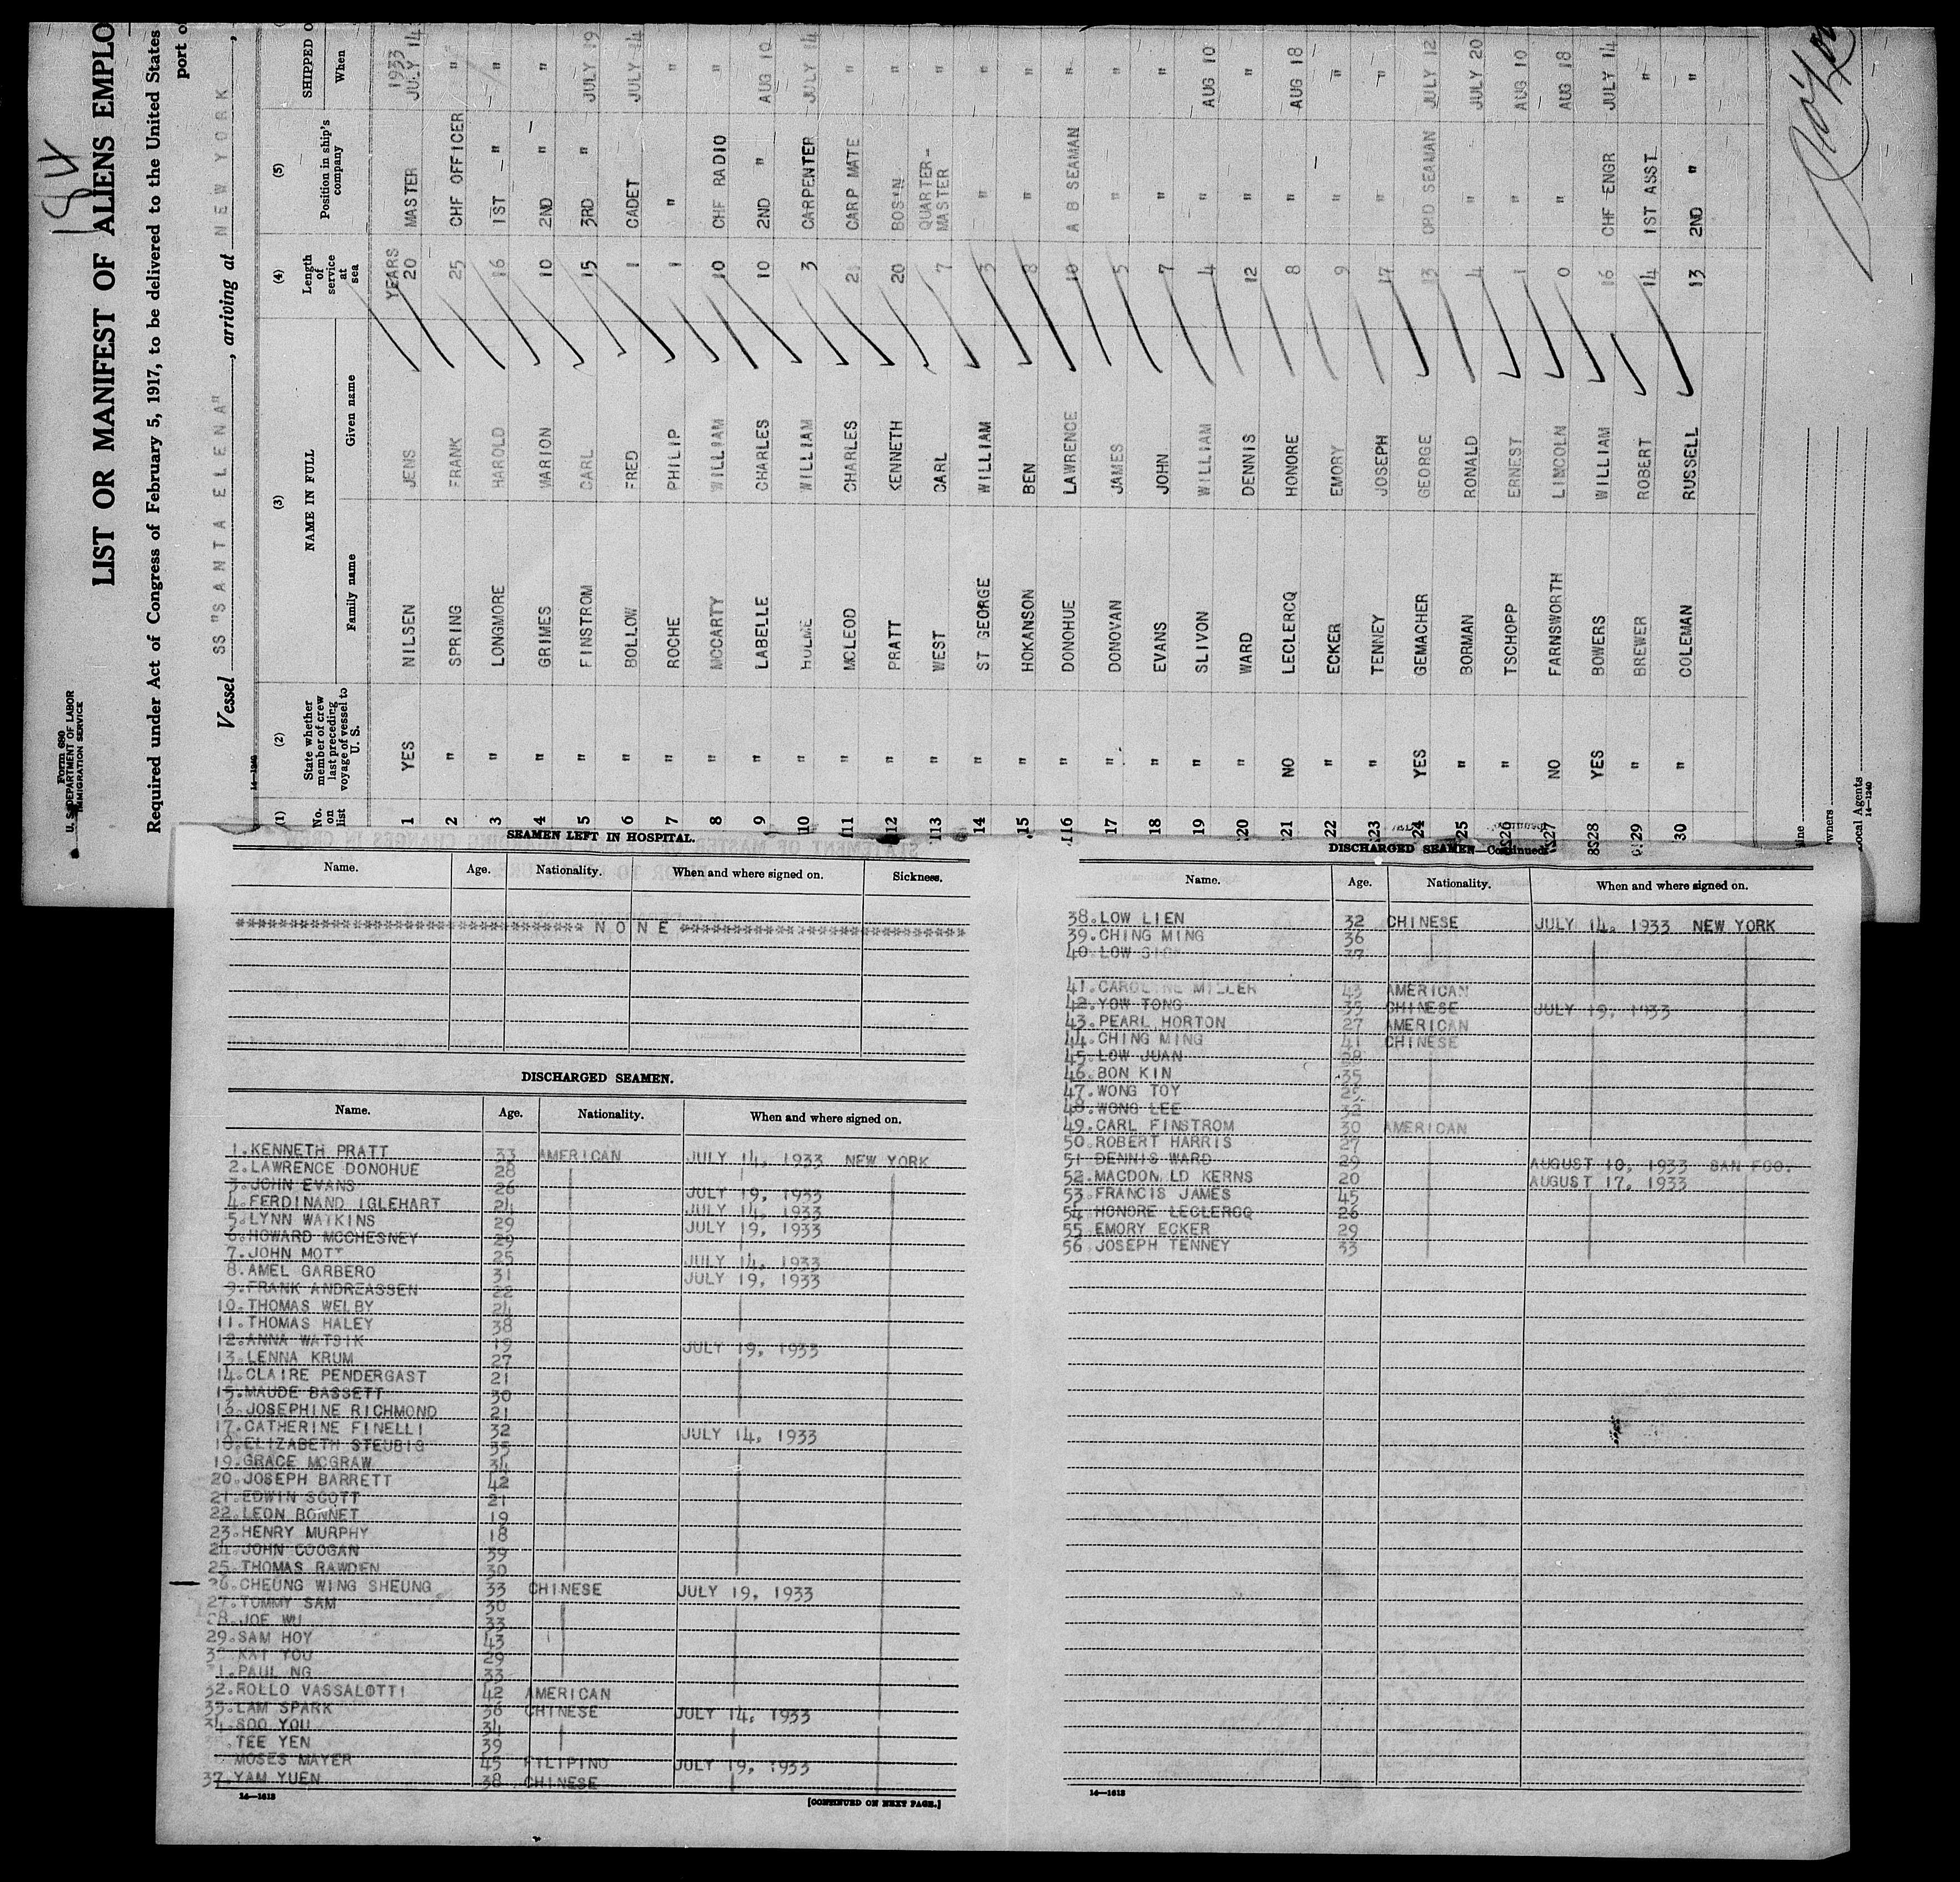 18H
Form 680
U. S. DEPARTMENT OF LABOR
IMMIGRATION SERVICE
LIST OR MANIFEST OF ALIENS EMPLO
Required under Act of Congress of February 5, 1917, to be delivered to the United States
port o
Vessel SS "SANTA ELENA", arriving at NEW YORK,
14—1240
(1) (2) (3) (4) (5)
No. on list
State whether member of crew last preceding voyage of vessel to U. S.
NAME IN FULL
Family name Given name
Length of service at sea
Position in ship's company
SHIPPED O
When
YEARS 1933
1 YES NILSEN JENS 20 MASTER JULY 14
2 " SPRING FRANK 25 CHF OFFICER "
3 " LONGMORE HAROLD 16 1ST " "
4 " GRIMES MARION 10 2ND " "
5 " FINSTROM CARL 15 3RD " JULY 19
6 " BOLLOW FRED 1 CADET JULY 14
7 " ROCHE PHILIP 1 " "
8 " MCCARTY WILLIAM 10 CHF RADIO "
9 " LABELLE CHARLES 10 2ND " AUG 10
10 " HOLME WILLIAM 3 CARPENTER JULY 14
11 " MCLEOD CHARLES 2 CARP MATE "
12 " PRATT KENNETH 20 BOS'N "
13 " WEST CARL 7 QUARTER-MASTER "
14 " ST GEORGE WILLIAM 3 " "
15 " HOKANSON BEN 8 " "
16 " DONOHUE LAWRENCE 10 A B SEAMAN "
17 " DONOVAN JAMES 5 " "
18 " EVANS JOHN 7 " "
19 " SLIVON WILLIAM 4 " AUG 10
20 " WARD DENNIS 12 " "
21 NO LECLERCQ HONORE 8 " AUG 18
22 " ECKER EMORY 9 " "
23 " TENNEY JOSEPH 17 " "
24 YES GEMACHER GEORGE 13 ORD SEAMAN JULY 12
25 " BORMAN RONALD 4 " JULY 20
26 " TSCHOPP ERNEST 1 " AUG 10
27 NO FARNSWORTH LIMCOLN 0 " AUG 18
28 YES BOWERS WILLIAM 16 CHF ENGR JULY 14
29 " BREWER ROBERT 14 1ST ASST "
30 " COLEMAN RUSSELL 13 2ND " "
Line
Owners
Local Agents
14—1240
SEAMEN LEFT IN HOSPITAL.
Name. Age. Nationality. When and where signed on. Sickness.
NONE
DISCHARGED SEAMEN.
Name. Age. Nationality. When and where signed on.
1. KENNETH PRATT 33 AMERICAN JULY 14, 1933 NEW YORK
2. LAWRENCE DONOHUE 28
3. JOHN EVANS 26 JULY 19, 1933
4. FERDINAND IGLEHART 24 JULY 14, 1933
5. LYNN WATKINS 29 JULY 19, 1933
6. HOWARD MCCHESNEY 29
7. JOHN MOTT 25 JULY 14, 1933
8. AMEL GARBERO 31 JULY 19, 1933
9. FRANK ANDREASSEN 22
10. THOMAS WELBY 24
11. THOMAS HALEY 38
12. ANNA WATSIK 19 JULY 19, 1933
13. LENNA KRUM 27
14. CLAIRE PENDERGAST 21
15. MAUDE BASSETT 30
16. JOSEPHINE RICHMOND 21
17. CATHERINE FINELLI 32 JULY 14, 1933
18. ELIZABETH STEUBIG 35
19. GRACE MCGRAW 34
20. JOSEPH BARRETT 42
21. EDWIN SCOTT 21
22. LEON BONNET 19
23. HENRY MURPHY 18
24. JOHN COOGAN 39
25. THOMAS RAWDEN 30
26. CHEUNG WING SHEUNG 33 CHINESE JULY 19, 1933
27. TOMMY SAM 30
28. JOE WU 33
29. SAM HOY 43
3 KAT YOU 29
31. PAUL NG 33
32. ROLLO VASSALOTTI 42 AMERICAN
33. LAM SPARK 36 CHINESE JULY 14, 1933
34. SOO YOU 34
TEE YEN 39
MOSES MAYER 45 FILIPINO JULY 19, 1933
37. YAM YUEN 38 CHINESE
14—1613
[CONTINUED ON NEXT PAGE.]
DISCHARGED SEAMEN—Continued
Name. Age. Nationality. When and where signed on.
38. LOW LIEN 32 CHINESE JULY 14, 1933 NEW YORK
39. CHING MING 36
40. LOW 37
41. CAROLINE MILLER 43 AMERICAN
42. YOW TONG 35 CHINESE JULY 19, 1933
43. PEARL HORTON 27 AMERICAN
44. CHING MING 41 CHINESE
45. LOW JUAN 28
46. BON KIN 35
47. WONG TOY 25
48. WONG LEE 32
49. CARL FINSTROM 30 AMERICAN
50. ROBERT HARRIS 27
51 DENNIS WARD 29 AUGUST 10, 1933 SAN FCO.
52. MACDONALD KERNS 20 AUGUST 17, 1933
53. FRANCIS JAMES 45
54 HONORE LECLERCQ 26
55 EMORY ECKER 29
56 JOSEPH TENNEY 33
14—1613